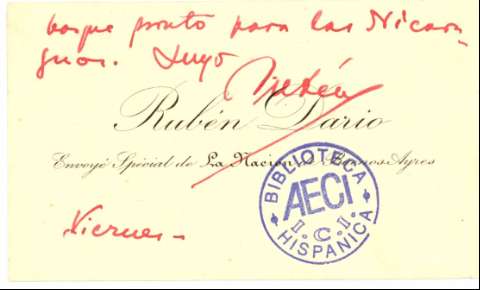 barque pronto para las Nicara-
guas. Suyo
Rubén
Rubén Dario
Envoyé Spécial de La Nacion de Buenos Ayres
Viernes -
BIBLIOTECA
AECI
I.C.I.
HISPANICA